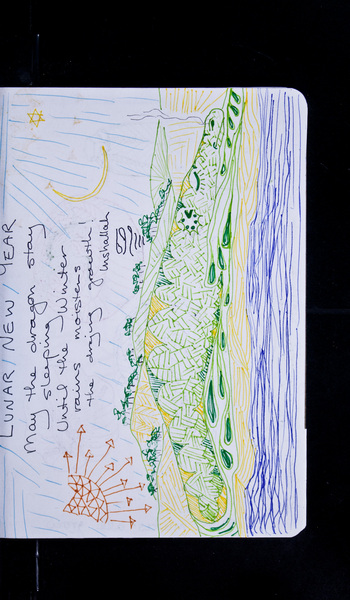 LUNAR NEW YEAR
May the dragon stay
sleeping
Until the Winter
rains moistens
the drying growth!
Inshallah